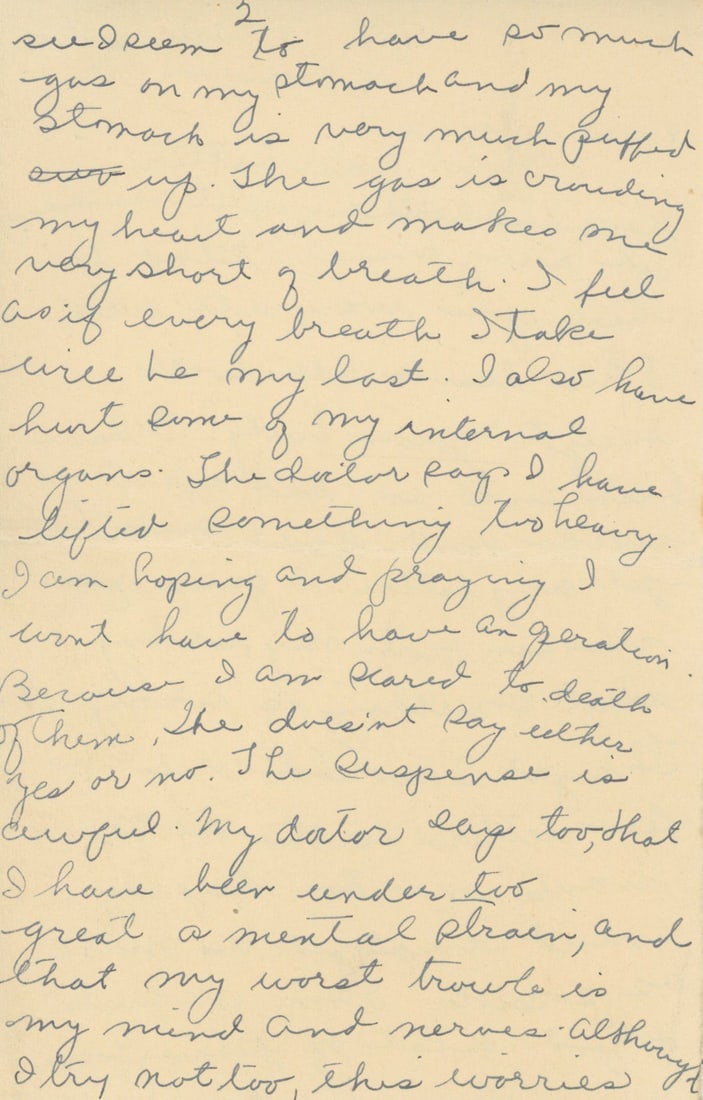 2
see I seem to have so much
gas on my stomach and my
stomach is very much puffed
up. The gas is crowding
my heart and makes me
very short of breath. I feel
as if every breath I take
will be my last. I also have
hurt some of my internal
organs. The doctor says I have
lifted something too heavy.
I am hoping and praying I
wont have to have an operation.
Because I am scared to death
of them. She doesn't say either
yes or no. The suspense is
awful. My doctor says too, that
I have been under too
great a mental strain, and
that my worst trouble is
my mind and nerves. Although
I try not too, this worries